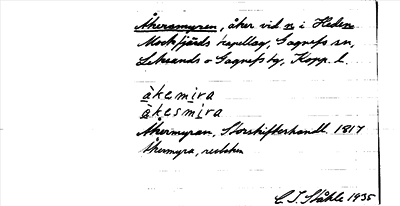 Åkersmyren, åker vid n i Heden
Mockfjärds kapellag, Gagnefs sn,
Leksands o Gagnefs tg, Kopp. l.
àkemira
àkesmira
Åkermyran, Storskifteshandl. 1817
Åkermyra,
C. I. Ståhle 1935